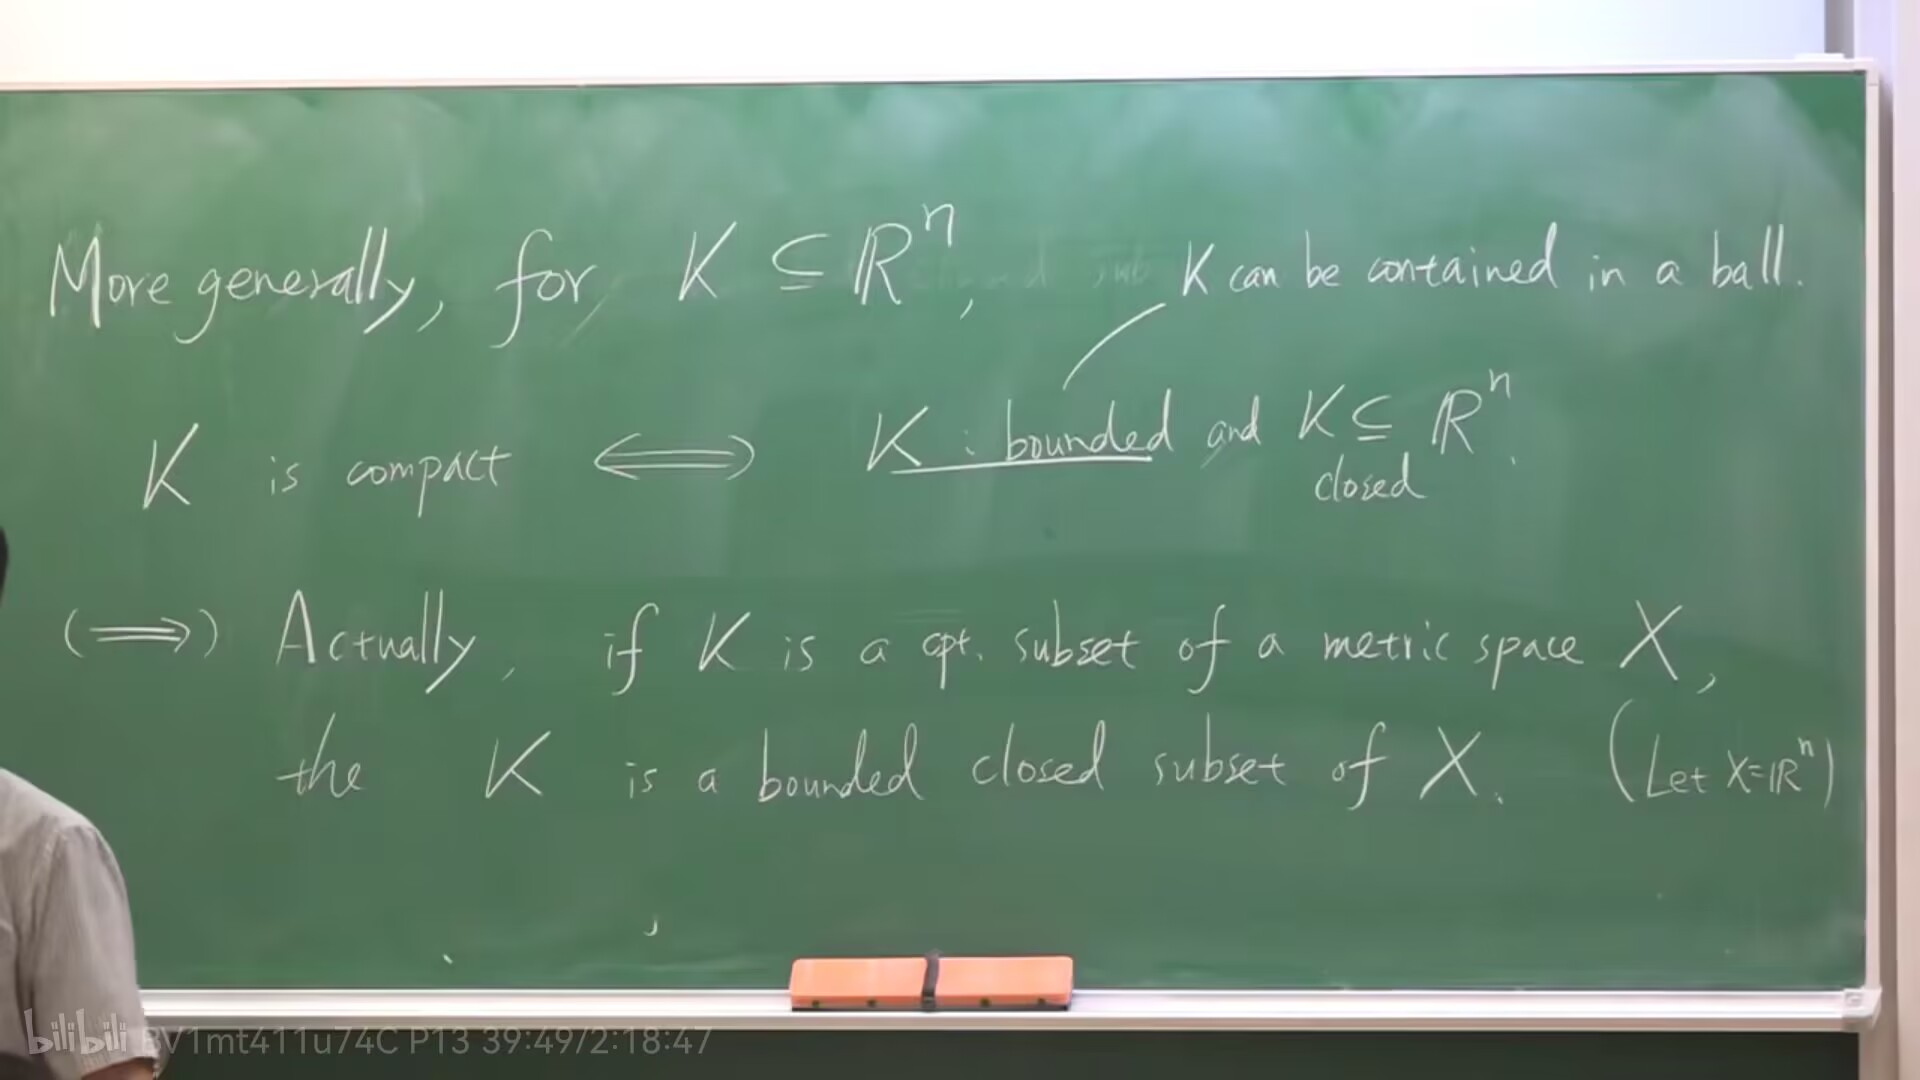 More generally, for K ⊆ ℝⁿ, K can be contained in a ball.
K is compact ⟺ K : bounded and K ⊆ ℝⁿ.
closed
(⟹) Actually, if K is a cpt. subset of a metric space X,
the K is a bounded closed subset of X. (Let X=ℝⁿ)
bilibili BV1mt411u74C P13 39:49/2:18:47